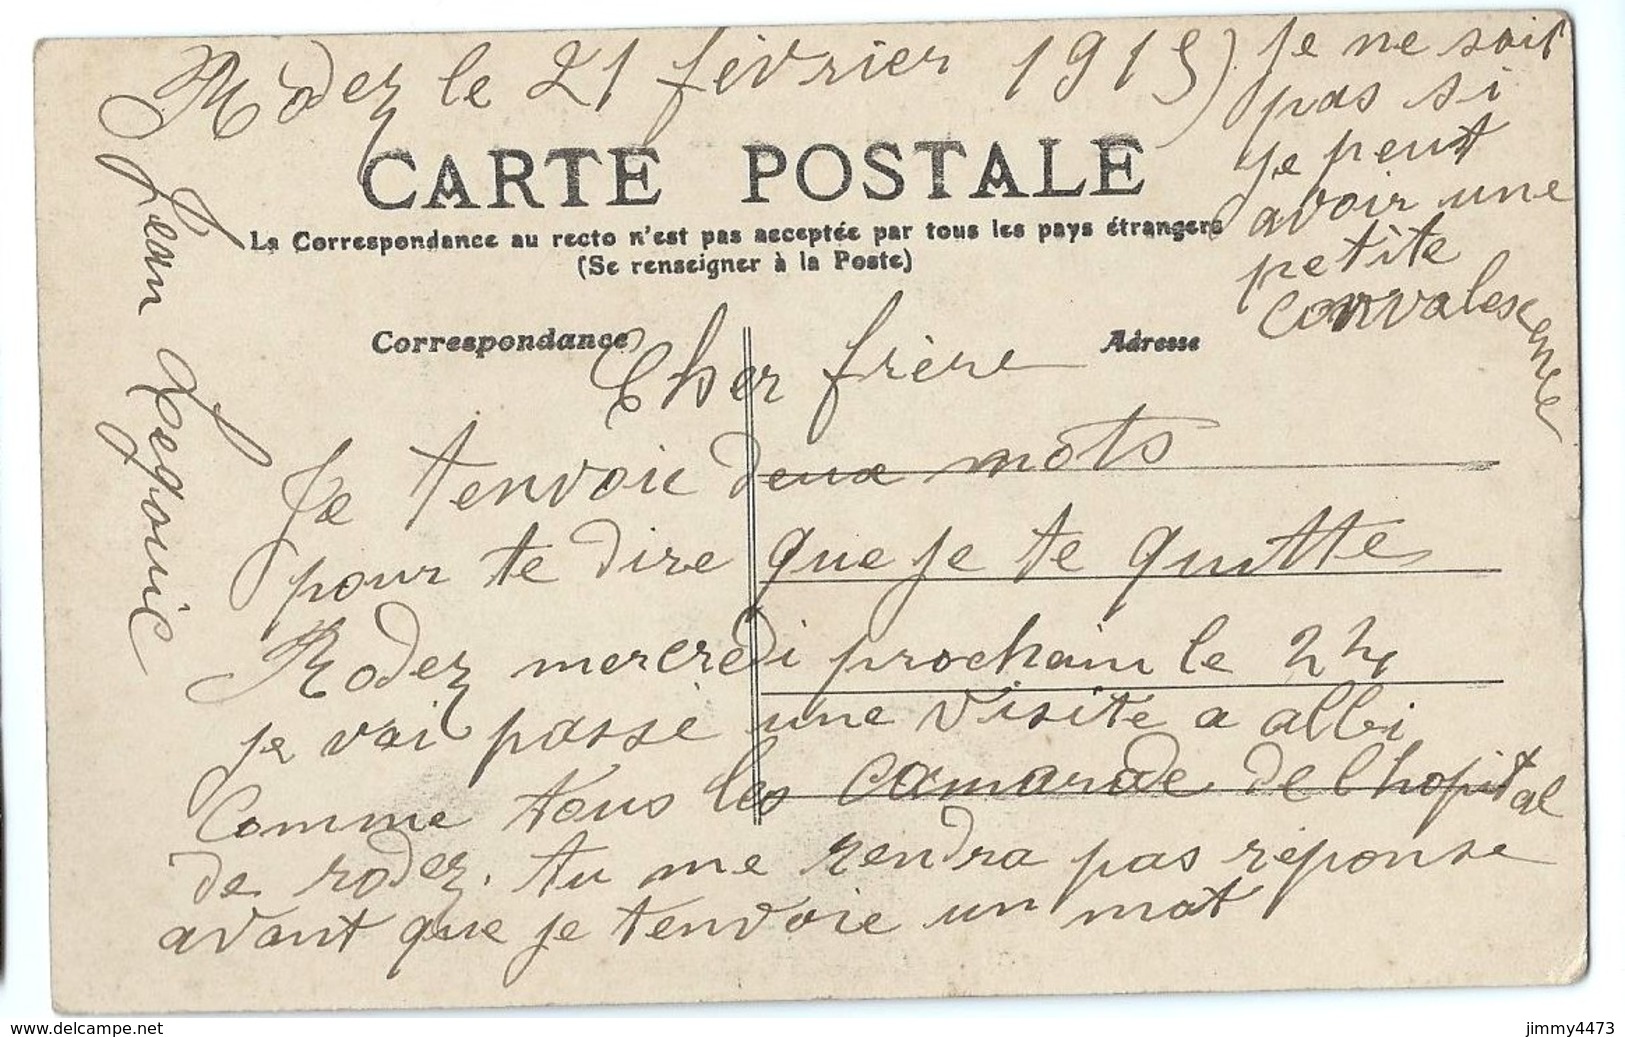 Rodez le 21 février 1915
CARTE POSTALE
La Correspondance au recto n'est pas acceptée par tous les pays étrangers
(Se renseigner à la Poste)
Correspondance
Adresse
Cher frère
Je tenvoie deux mots
pour te dire que je te quitte
Rodez mercredi prochain le 24
je vai passé une visite a albi
Comme tous les camarade de lhopital
de rodez. tu me rendra pas réponse
avant que je tenvoie un mot
je ne sait
pas si
je peut
avoir une
petite
convalescence
Jean
www.delcampe.net
jimmy4473